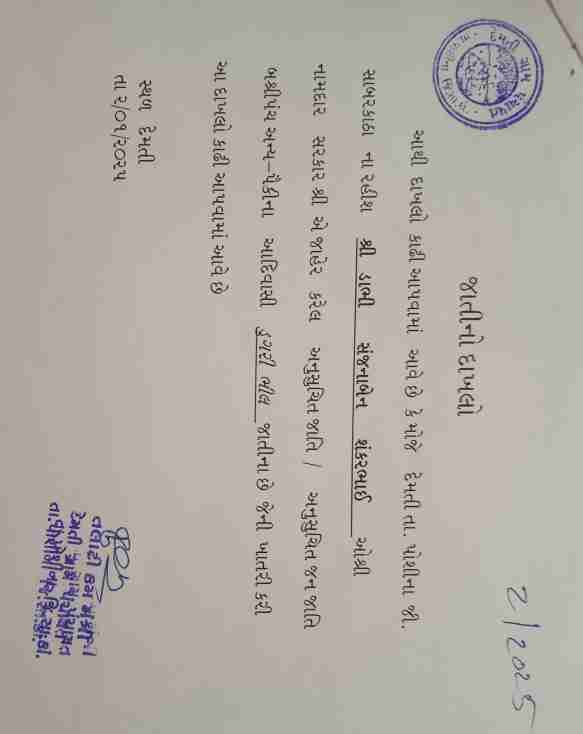 2/2025
જાતીનો દાખલો
આથી દાખલો કાઢી આપવામાં આવે છે કે મોજે દેમતી તા. પોશીના જી.
સાબરકાંઠા ના રહીશ શ્રી ડાભી સંજનાબેન શંકરભાઈ ઓશ્રી
નામદાર સરકાર શ્રી એ જાહેર કરેલ અનુસુચિત જાતિ / અનુસુચિત જન જાતિ
બક્ષીપંચ અન્ય-પૈકીના આદિવાસી ડુંગરી ભીલ જાતીના છે જેની ખાતરી કરી
આ દાખલો કાઢી આપવામાં આવે છે
સ્થળ દેમતી
તા ૨/૦૧/૨૦૨૫
તલાટી કમ મંત્રી
દેમતી ગ્રામ પંચાયત
તા.પોશીના જી.સા.કાં.